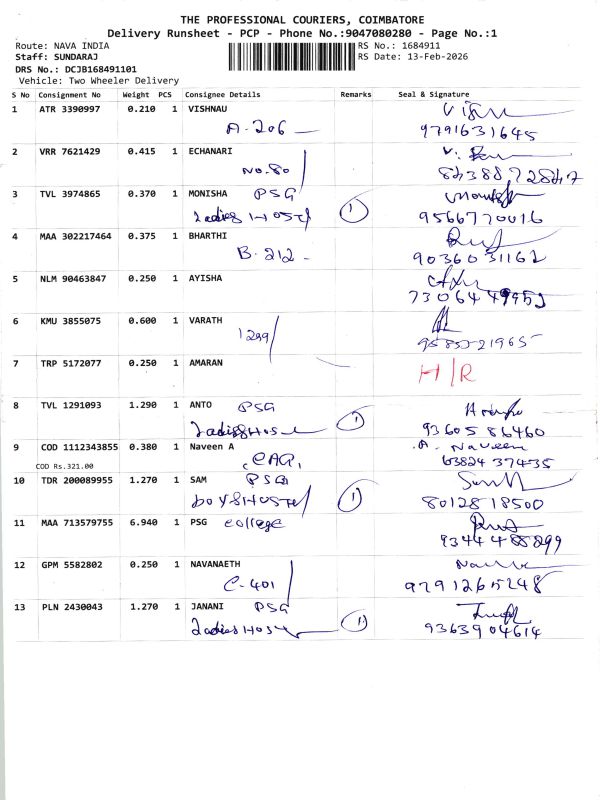 THE PROFESSIONAL COURIERS, COIMBATORE
Delivery Runsheet - PCP - Phone No.:9047080280 - Page No.:1
Route: NAVA INDIA RS No.: 1684911
Staff: SUNDARAJ RS Date: 13-Feb-2026
DRS No.: DCJB168491101
Vehicle: Two Wheeler Delivery
S No Consignment No Weight PCS Consignee Details Remarks Seal & Signature
1 ATR 3390997 0.210 1 VISHNAU
A-206 9791631645
2 VRR 7621429 0.415 1 ECHANARI
NO.80
3 TVL 3974865 0.370 1 MONISHA PSG
Ladies Hostel 1 9566770016
4 MAA 302217464 0.375 1 BHARTHI
B-212 9036031162
5 NLM 90463847 0.250 1 AYISHA
6 KMU 3855075 0.600 1 VARATH
1299 9585521965
7 TRP 5172077 0.250 1 AMARAN H/R
8 TVL 1291093 1.290 1 ANTO PSG
Ladies Hostel 1 9360586460
9 COD 1112343855 0.380 1 Naveen A A. Naveen
COD Rs.321.00 6382437435
10 TDR 200089955 1.270 1 SAM PSG
boys Hostel 1 8012818500
11 MAA 713579755 6.940 1 PSG college
9344488899
12 GPM 5582802 0.250 1 NAVANAETH
C-401 9791265248
13 PLN 2430043 1.270 1 JANANI PSG
Ladies Hostel 1 9363904614